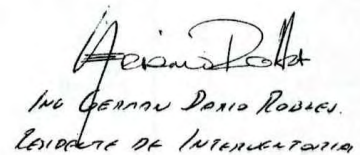 ING GERMAN DARIO ROBLES.
RESIDENTE DE INTERVENTORIA